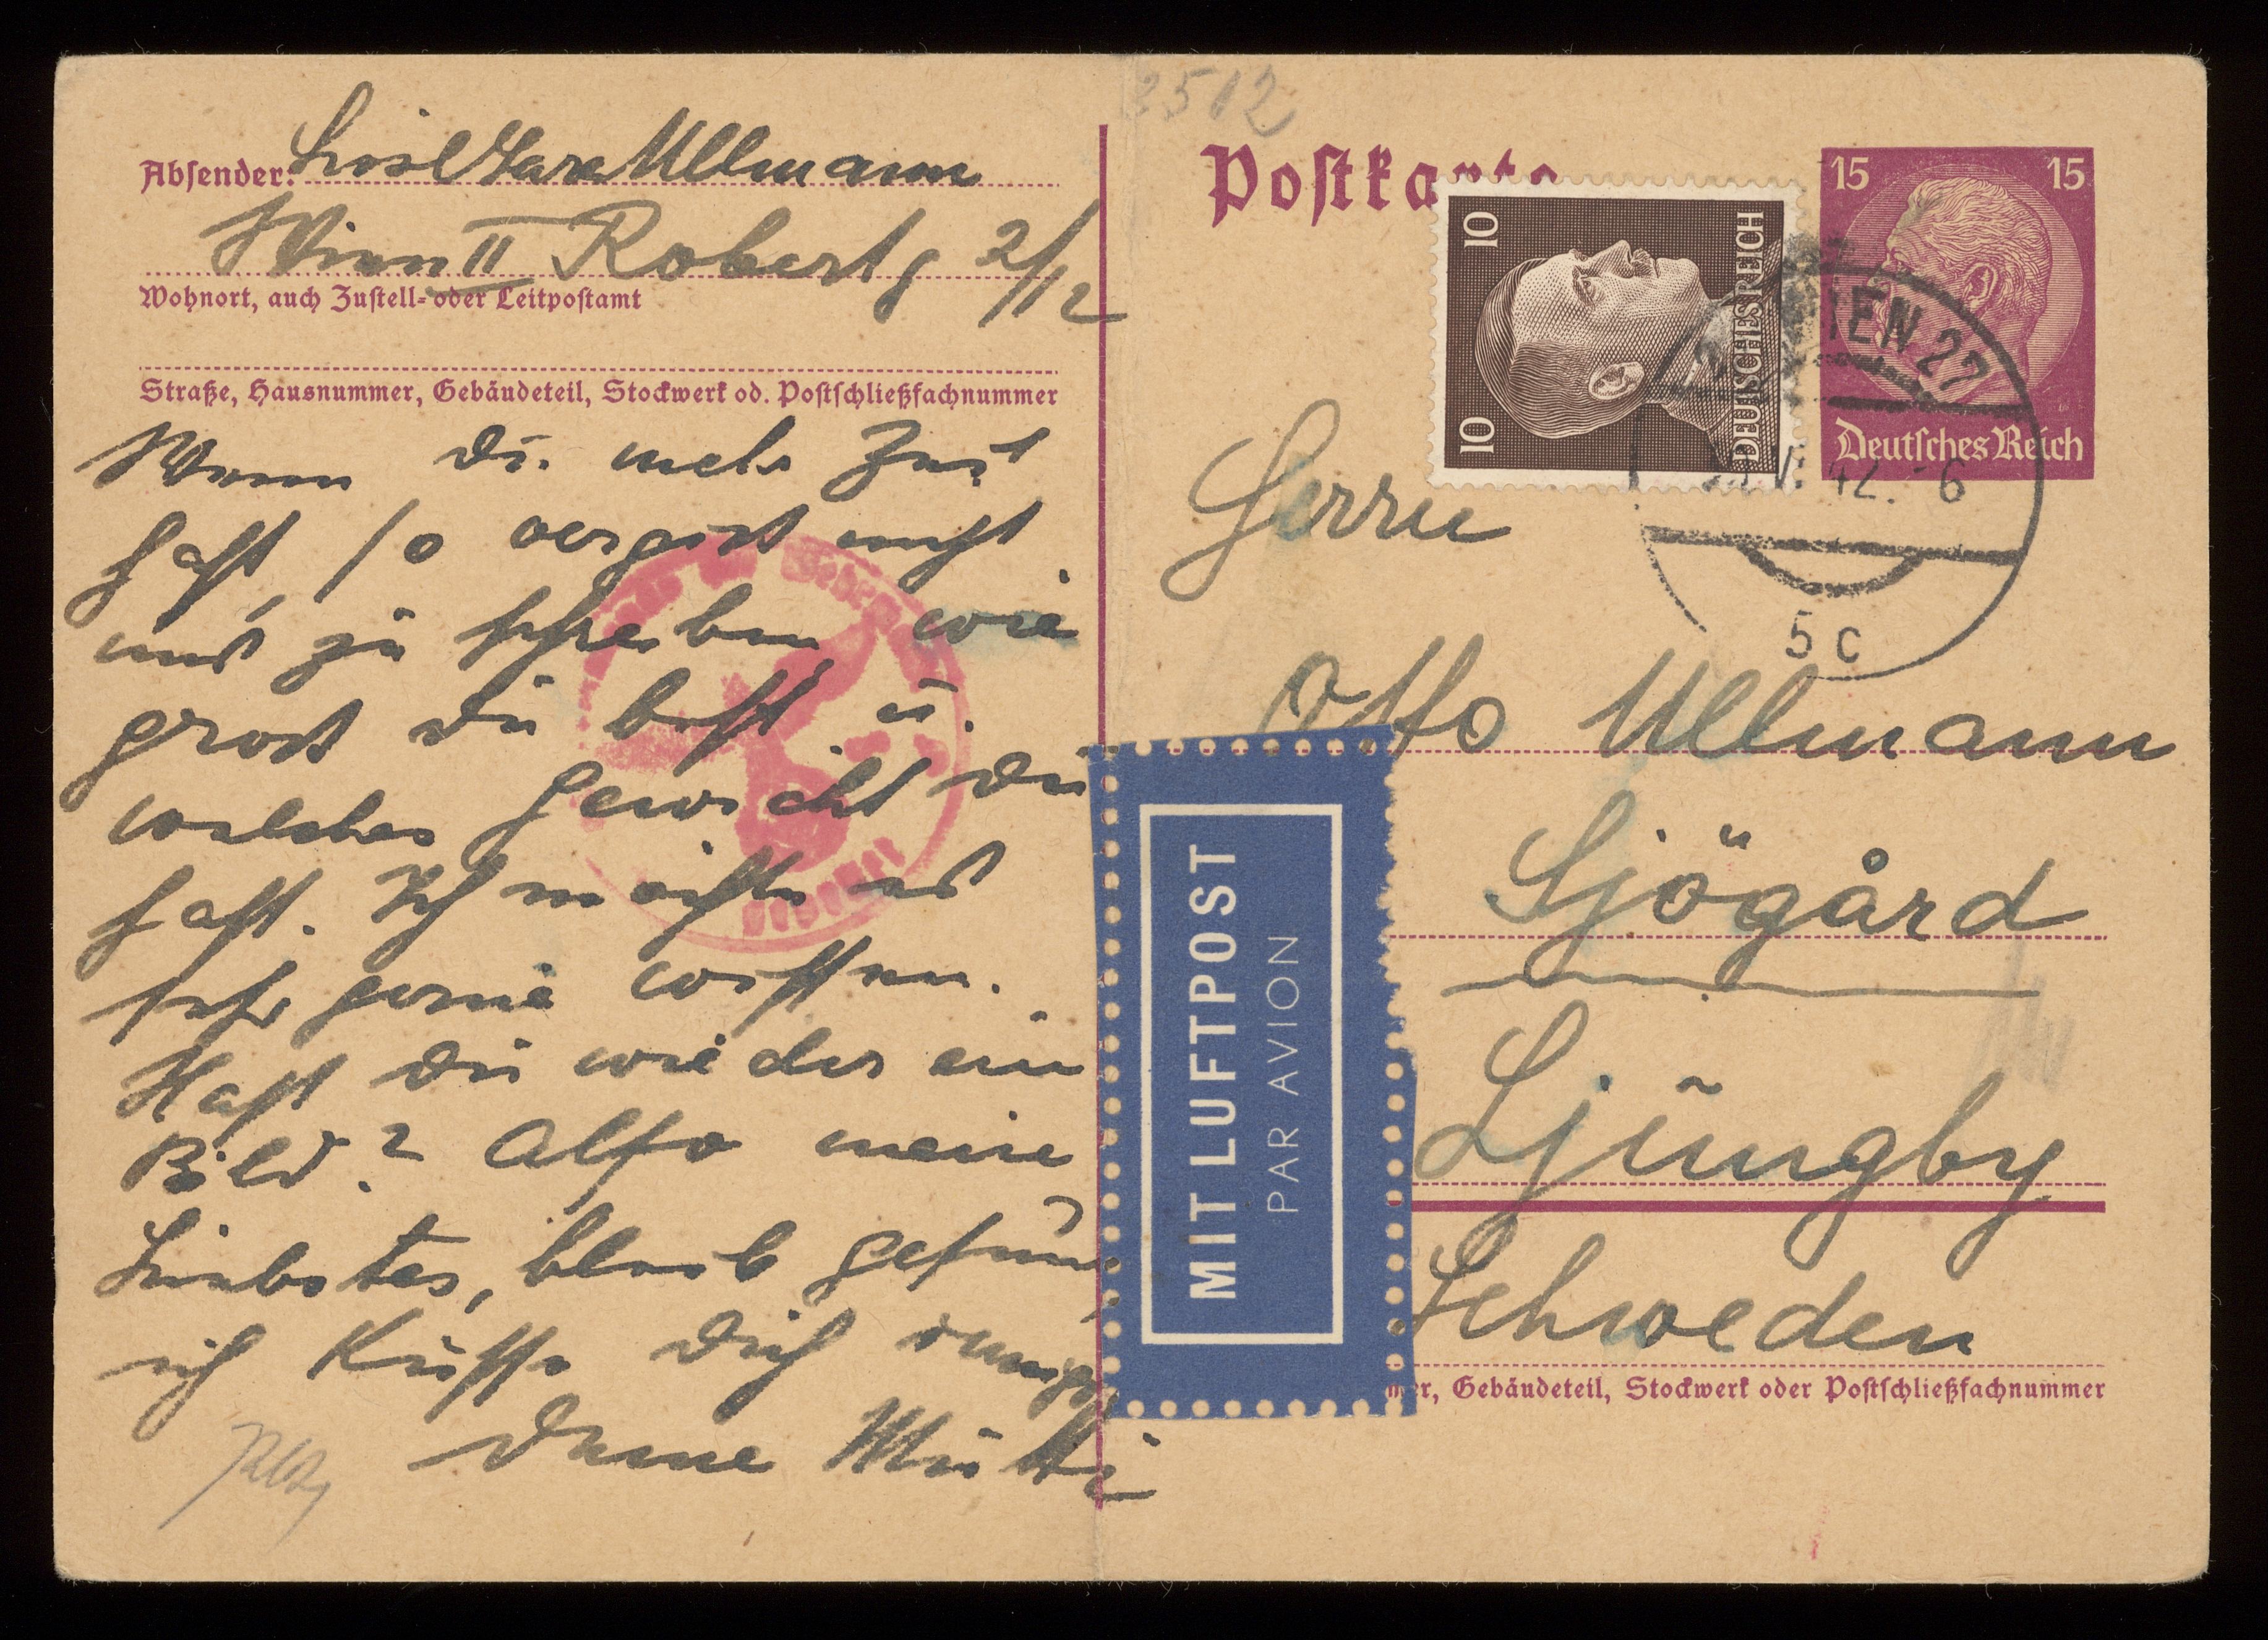 2512
Absender: Lisl Sara Ullmann
Wien II Robertg 2/12
Wohnort, auch Zustell- oder Leitpostamt
Straße, Hausnummer, Gebäudeteil, Stockwerk od. Postschließfachnummer
Wenn Du mehr Zeit
hast, so vergist nicht
uns zu schreiben wie
gross Du bist u.
welches Gewicht Du
hast. Ich möchte es
sehr gerne wissen.
Hast Du wieder ein
Bild? Also meine
Liebstes, bleib gesund,
ich küsse Dich innigst
Deine Mutti
Postkarte
10 10
DEUTSCHES REICH
15 15
Deutsches Reich
WIEN 27
42.-6
5c
Herrn
Otto Ullmann
Sjögård
Ljungby
Schweden
MIT LUFTPOST
PAR AVION
Gebäudeteil, Stockwerk oder Postschließfachnummer